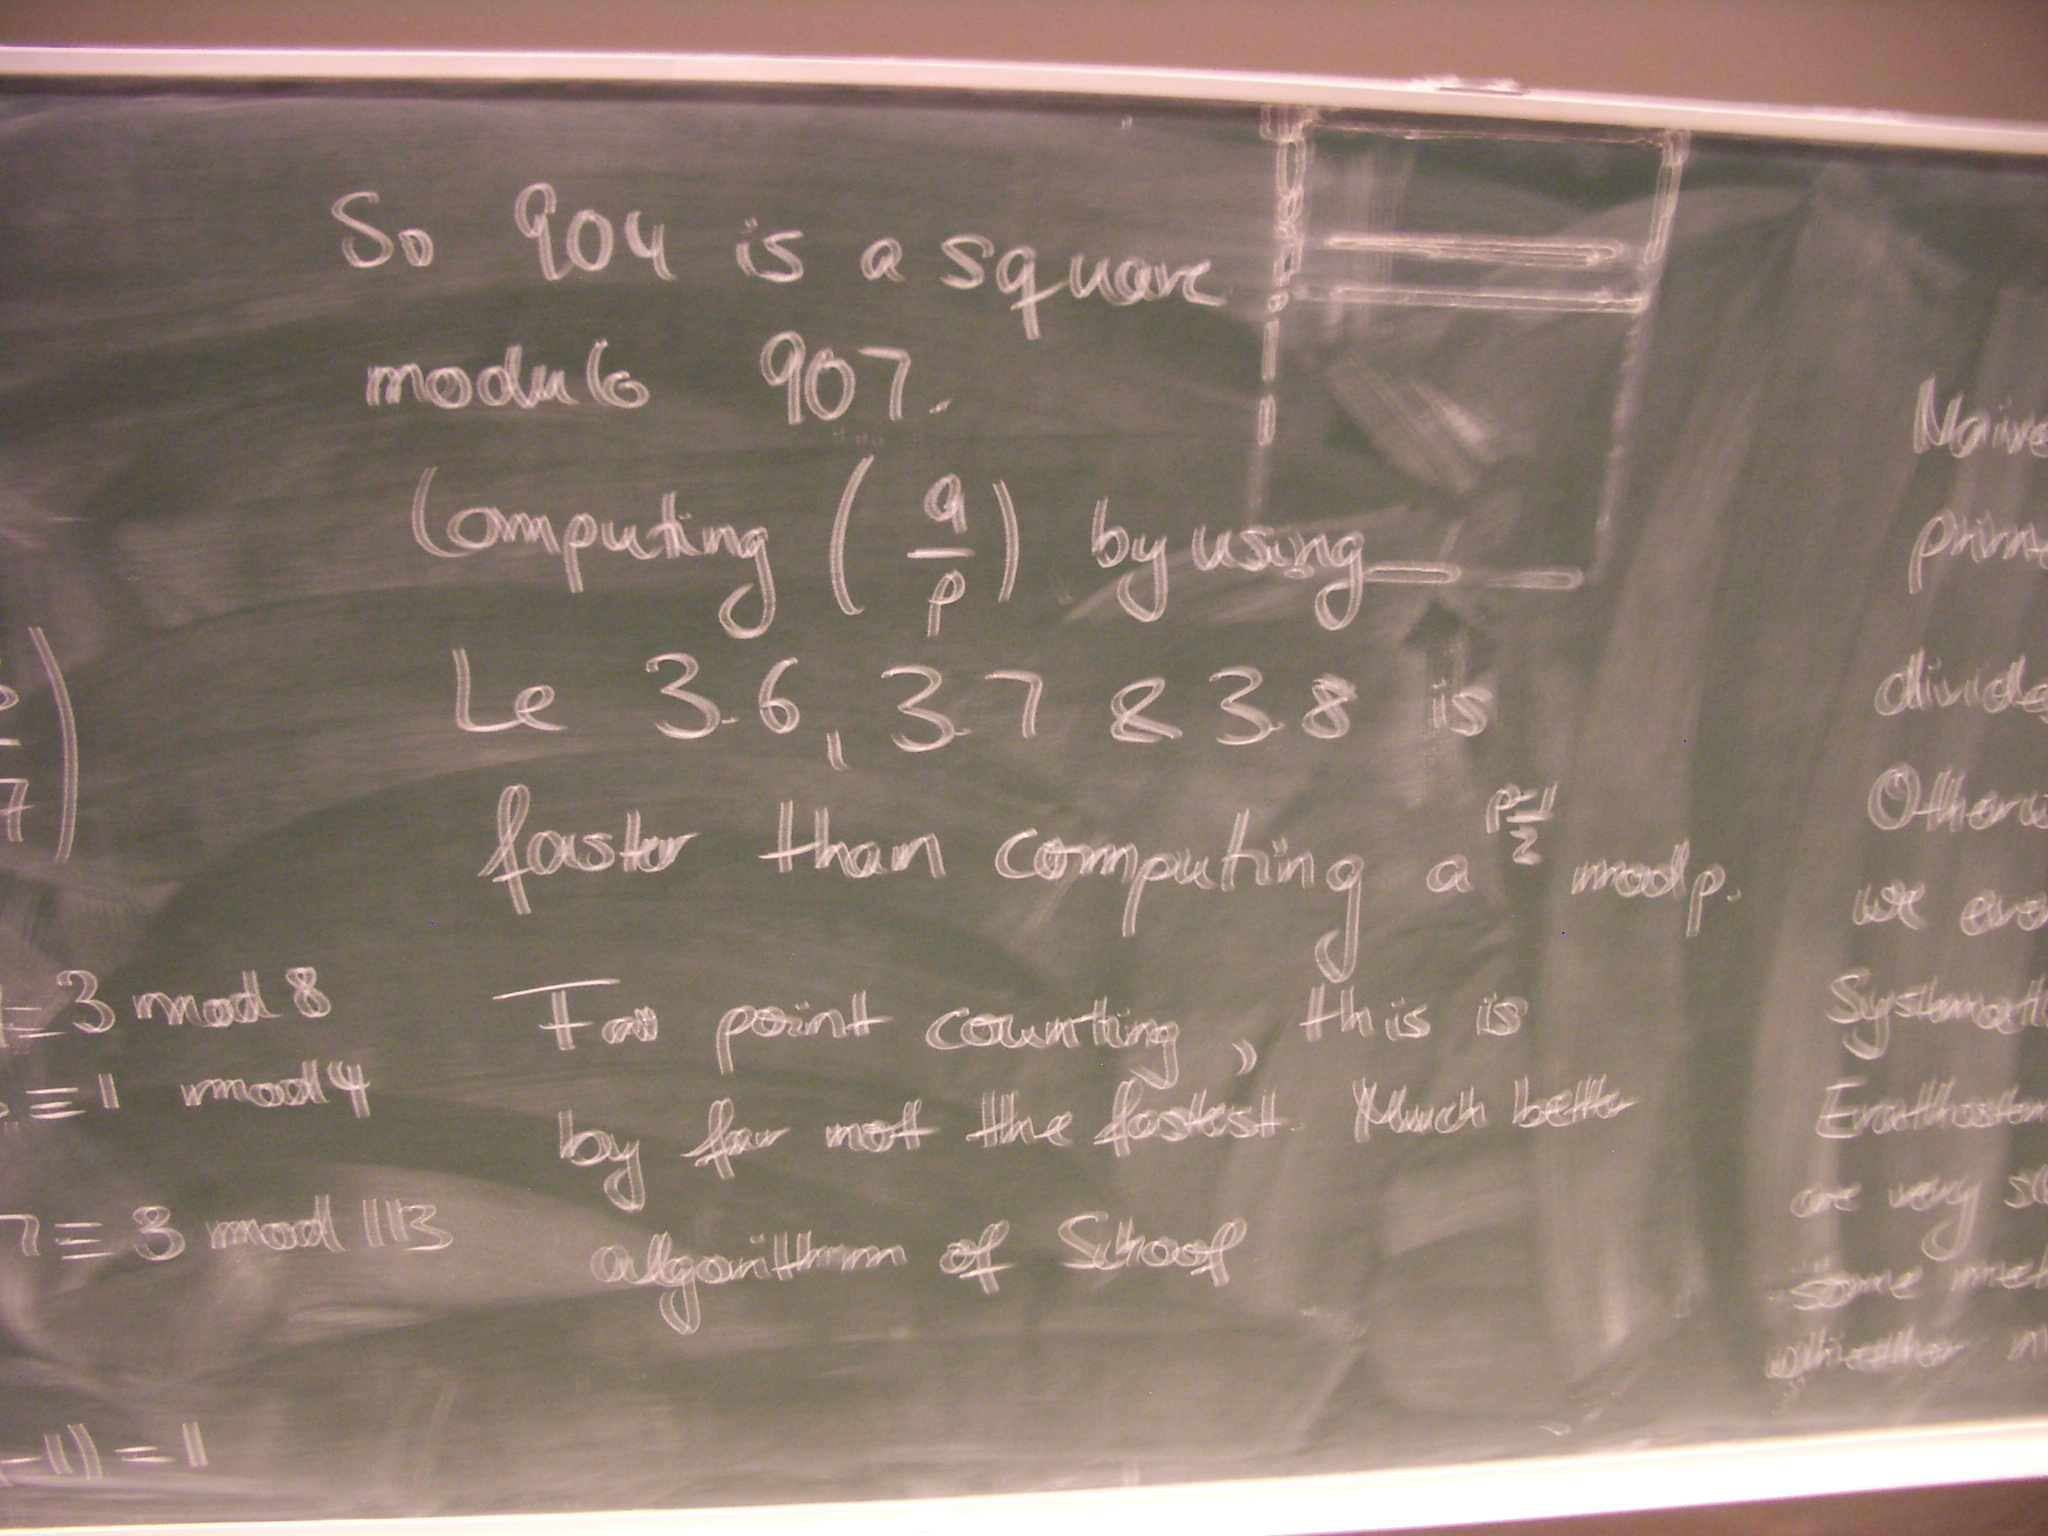 So 904 is a square
modulo 907.
Computing (a/p) by using
Le 3.6, 3.7 & 3.8 is
faster than computing a^(p-1)/2 mod p.
For point counting, this is
by far not the fastest. Much better
algorithm of Schoof
7
≡ 3 mod 8
≡ 1 mod 4
7 ≡ 3 mod 113
-1) = 1
Naive
prime
divide
Otherw
we eve
Systemati
Erathosten
are very
some met
whether